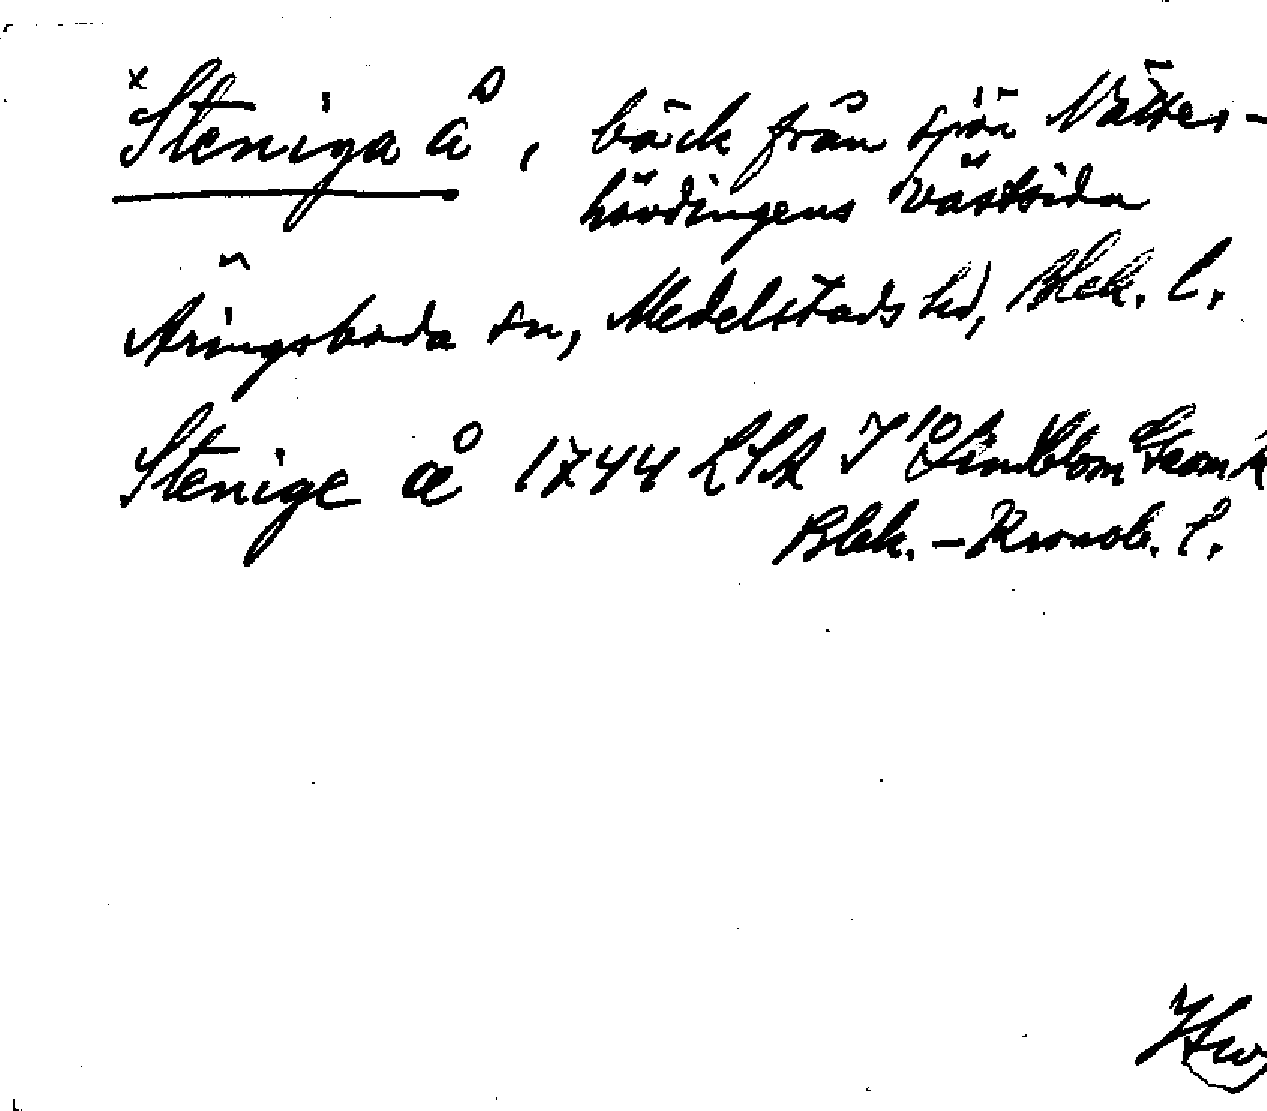 x Steniga å, bäck från sjön Västes-
hövdingens västsida
Äringsboda sn, Medelstads hd, Blek. l.
Stenige å 1744 LSA J 10 Lindblom
Blek. – Kronob. l.